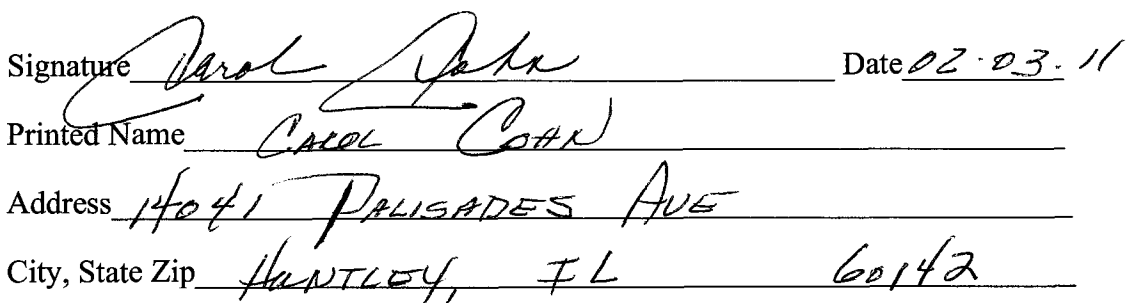 Signature Carol Cohn Date 02.03.11
Printed Name CAROL COHN
Address 14041 PALISADES AVE
City, State Zip HUNTLEY, IL 60142